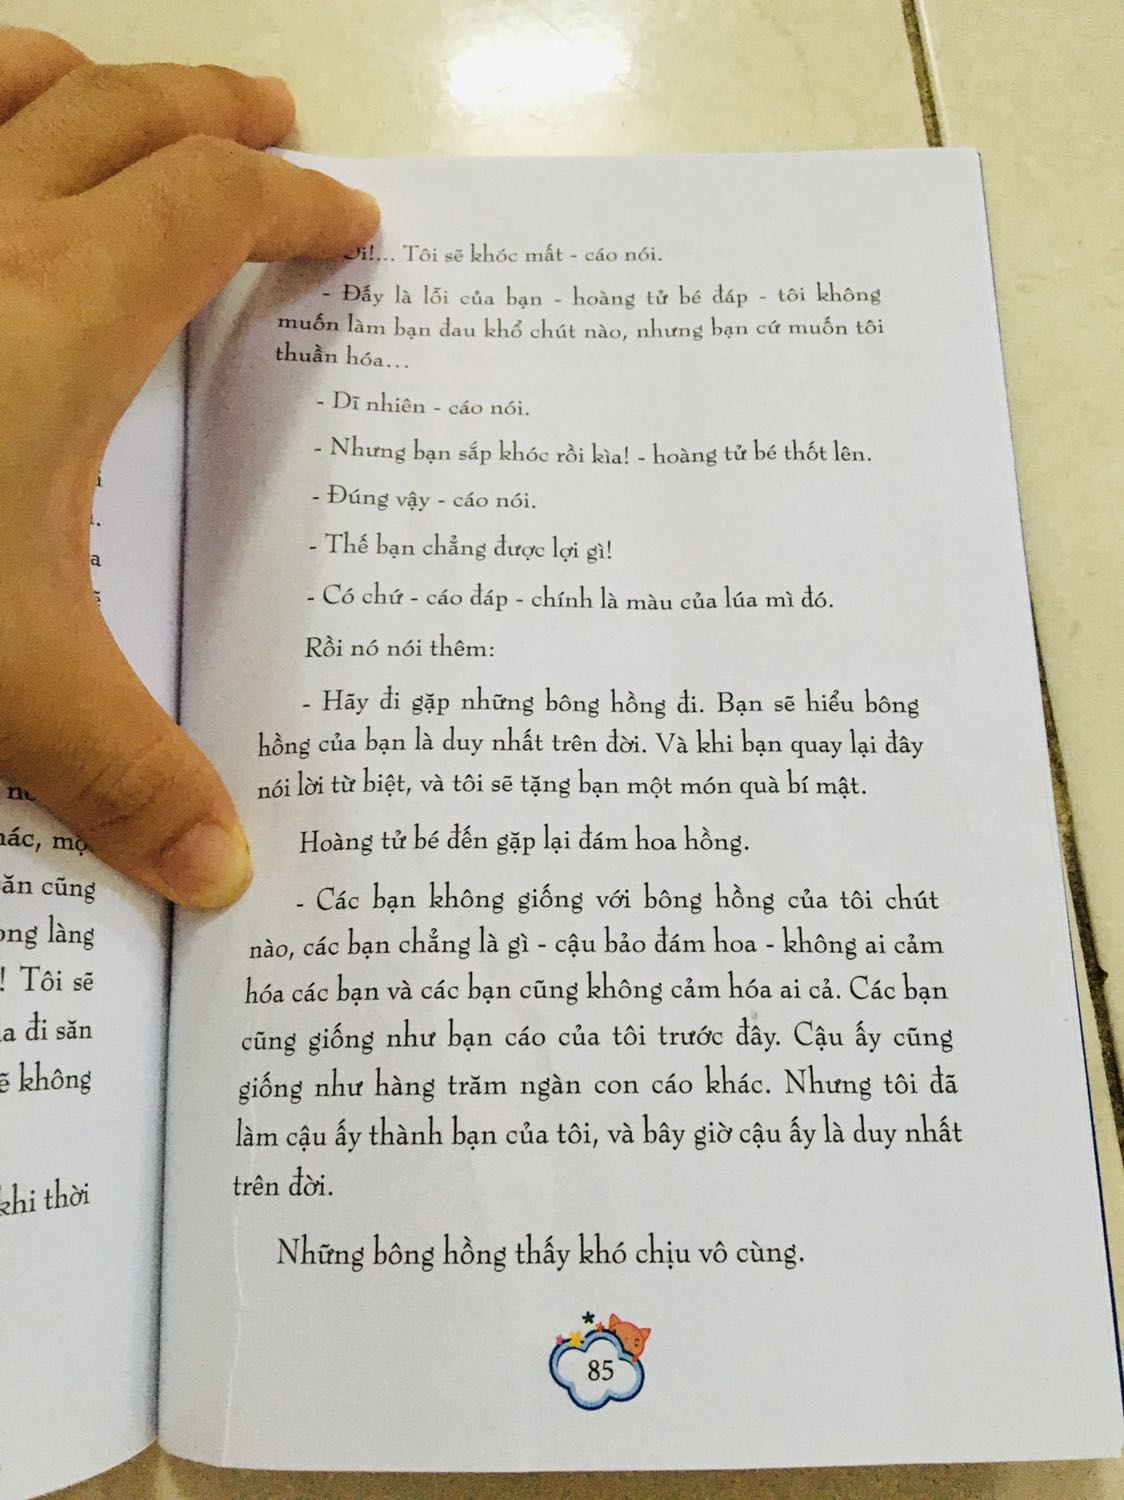 i
a
ác, mộ
ăn cũng
ong làng
! Tôi sẽ
a đi săn
ẽ không
khi thời
Ôi!... Tôi sẽ khóc mất - cáo nói.
- Đấy là lỗi của bạn - hoàng tử bé đáp - tôi không
muốn làm bạn đau khổ chút nào, nhưng bạn cứ muốn tôi
thuần hóa...
- Dĩ nhiên - cáo nói.
- Nhưng bạn sắp khóc rồi kìa! - hoàng tử bé thốt lên.
- Đúng vậy - cáo nói.
- Thế bạn chẳng được lợi gì!
- Có chứ - cáo đáp - chính là màu của lúa mì đó.
Rồi nó nói thêm:
- Hãy đi gặp những bông hồng đi. Bạn sẽ hiểu bông
hồng của bạn là duy nhất trên đời. Và khi bạn quay lại đây
nói lời từ biệt, và tôi sẽ tặng bạn một món quà bí mật.
Hoàng tử bé đến gặp lại đám hoa hồng.
- Các bạn không giống với bông hồng của tôi chút
nào, các bạn chẳng là gì - cậu bảo đám hoa - không ai cảm
hóa các bạn và các bạn cũng không cảm hóa ai cả. Các bạn
cũng giống như bạn cáo của tôi trước đây. Cậu ấy cũng
giống như hàng trăm ngàn con cáo khác. Nhưng tôi đã
làm cậu ấy thành bạn của tôi, và bây giờ cậu ấy là duy nhất
trên đời.
Những bông hồng thấy khó chịu vô cùng.
85